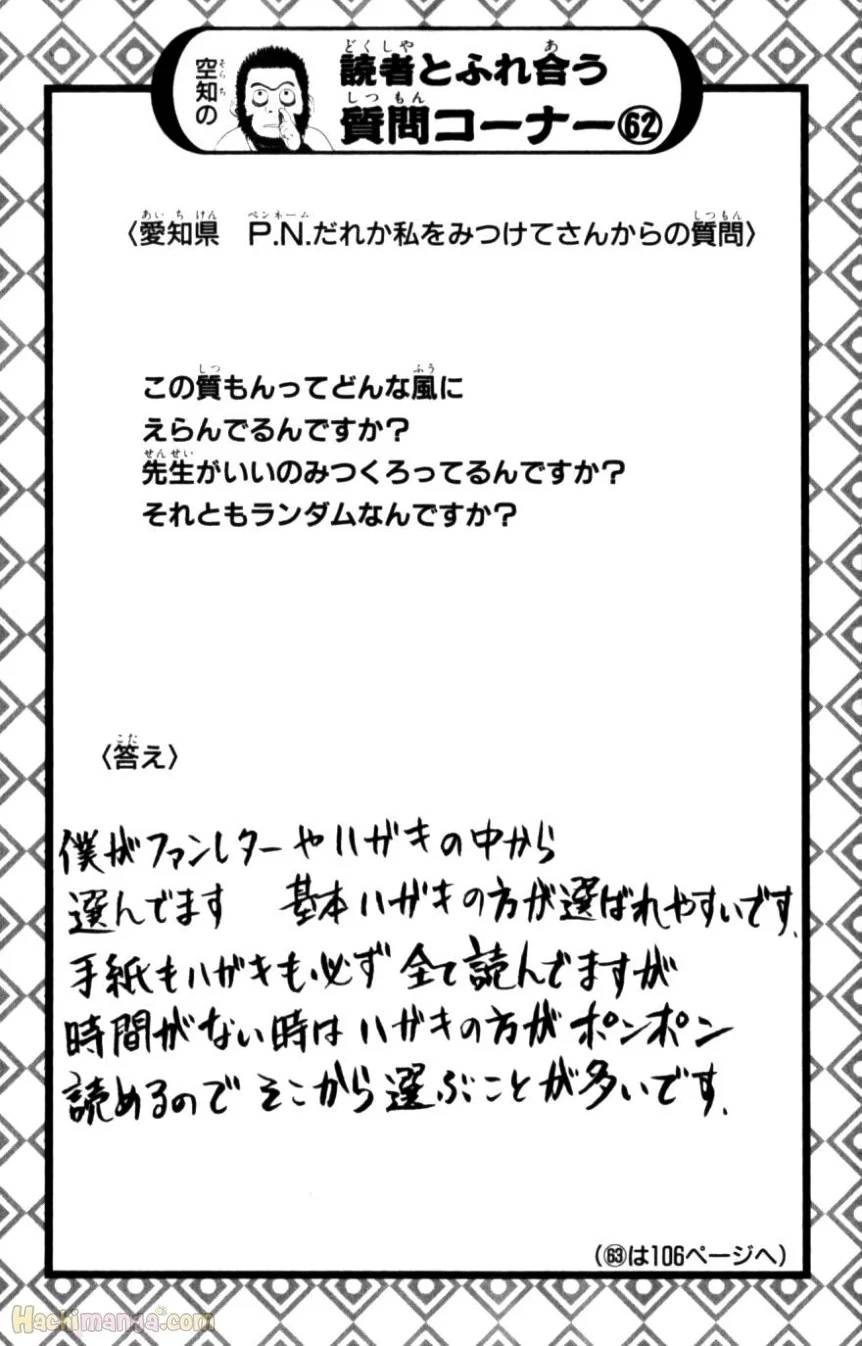 空知の
読者とふれ合う
質問コーナー㊷
〈愛知県　P.N.だれか私をみつけてさんからの質問〉
この質もんってどんな風に
えらんでるんですか？
先生がいいのみつくろってるんですか？
それともランダムなんですか？
〈答え〉
僕がファンレターやハガキの中から
選んでます　基本ハガキの方が選ばれやすいです.
手紙もハガキも必ず全て読んでますが
時間がない時はハガキの方がポンポン
読めるのでそこから選ぶことが多いです.
（63は106ページへ）
Hachimanga.com